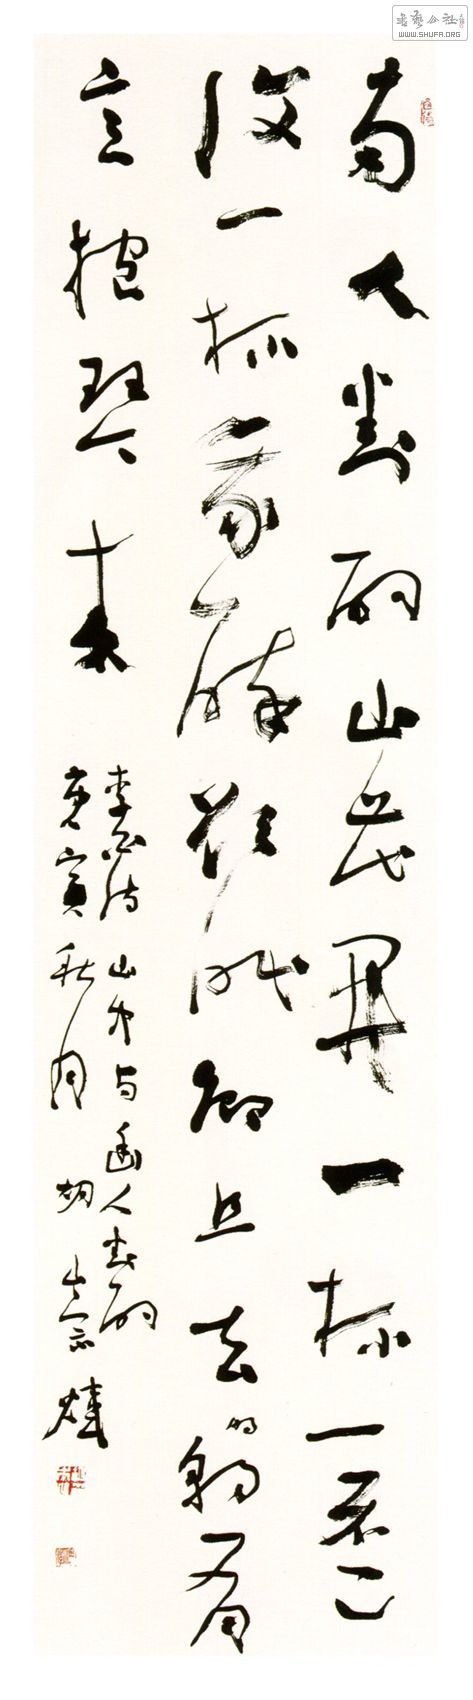 两人對酌山花開一杯一盃
復一杯我醉欲眠卿且去明朝有
意抱琴来
李白詩 山中与幽人對酌
庚寅秋月 胡崇煒
書藝公社
WWW.SHUFA.ORG